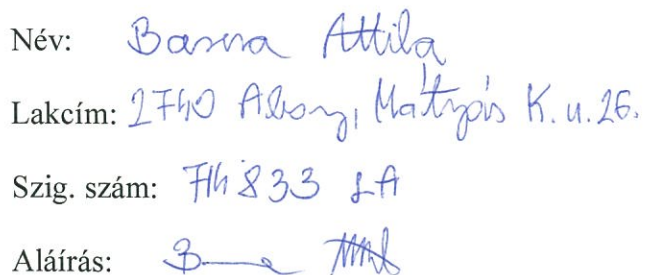 Név: Barna Attila
Lakcím: 2740 Abony, Mátyás K. u. 26.
Szig. szám: 714833 LA
Aláírás: